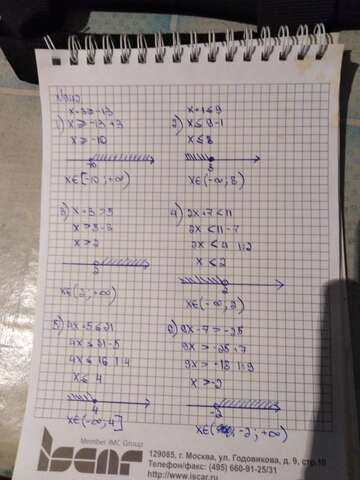 №942
x-3≥-13
1) x≥-13+3
x≥-10
-10
x∈[-10;+∞)
x+1≤9
2) x≤9-1
x≤8
8
x∈(-∞;8)
3) x+3>5
x>5-3
x>2
2
x∈(2;+∞)
4) 2x+7<11
2x<11-7
2x<4 |:2
x<2
2
x∈(-∞;2)
5) 4x+5≤21
4x≤21-5
4x≤16 |:4
x≤4
4
x∈(-∞;4]
6) 9x-7>-25
9x>-25+7
9x>-18 |:9
x>-2
-2
x∈(-2;+∞)
Member IMC Group
iscar
129085, г. Москва, ул. Годовикова, д. 9, стр.10
Телефон/факс: (495) 660-91-25/31
http://www.iscar.ru